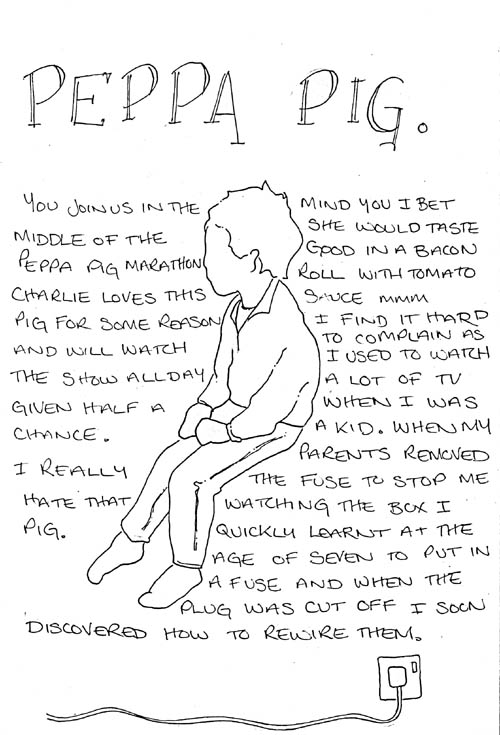 PEPPA PIG.
YOU JOIN US IN THE
MIDDLE OF THE
PEPPA PIG MARATHON
CHARLIE LOVES THIS
PIG FOR SOME REASON
AND WILL WATCH
THE SHOW ALL DAY
GIVEN HALF A
CHANCE.
I REALLY
HATE THAT
PIG.
MIND YOU I BET
SHE WOULD TASTE
GOOD IN A BACON
ROLL WITH TOMATO
SAUCE MMM
I FIND IT HARD
TO COMPLAIN AS
I USED TO WATCH
A LOT OF TV
WHEN I WAS
A KID. WHEN MY
PARENTS REMOVED
THE FUSE TO STOP ME
WATCHING THE BOX I
QUICKLY LEARNT AT THE
AGE OF SEVEN TO PUT IN
A FUSE AND WHEN THE
PLUG WAS CUT OFF I SOON
DISCOVERED HOW TO REWIRE THEM.